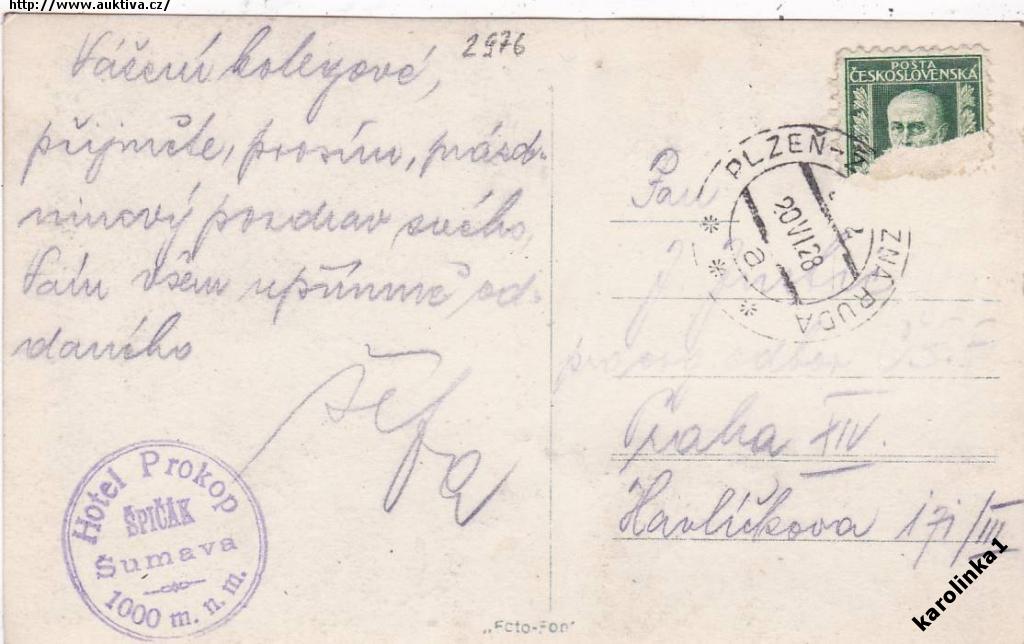 http://www.auktiva.cz/
2976
Vážení kolegové,
přijměte, prosím, prázd-
ninový pozdrav svého,
Vám všem upřímně od-
daného
Hotel Prokop
ŠPIČÁK
Šumava
1000 m. n. m.
POŠTA
ČESKOSLOVENSKÁ
PLZEŇ-
ZNÁ RUDA
20 VI 28
a
Pan
J.
Praha XIV.
Havlíčkova 171/III
„Foto-Fon"
karolinka1